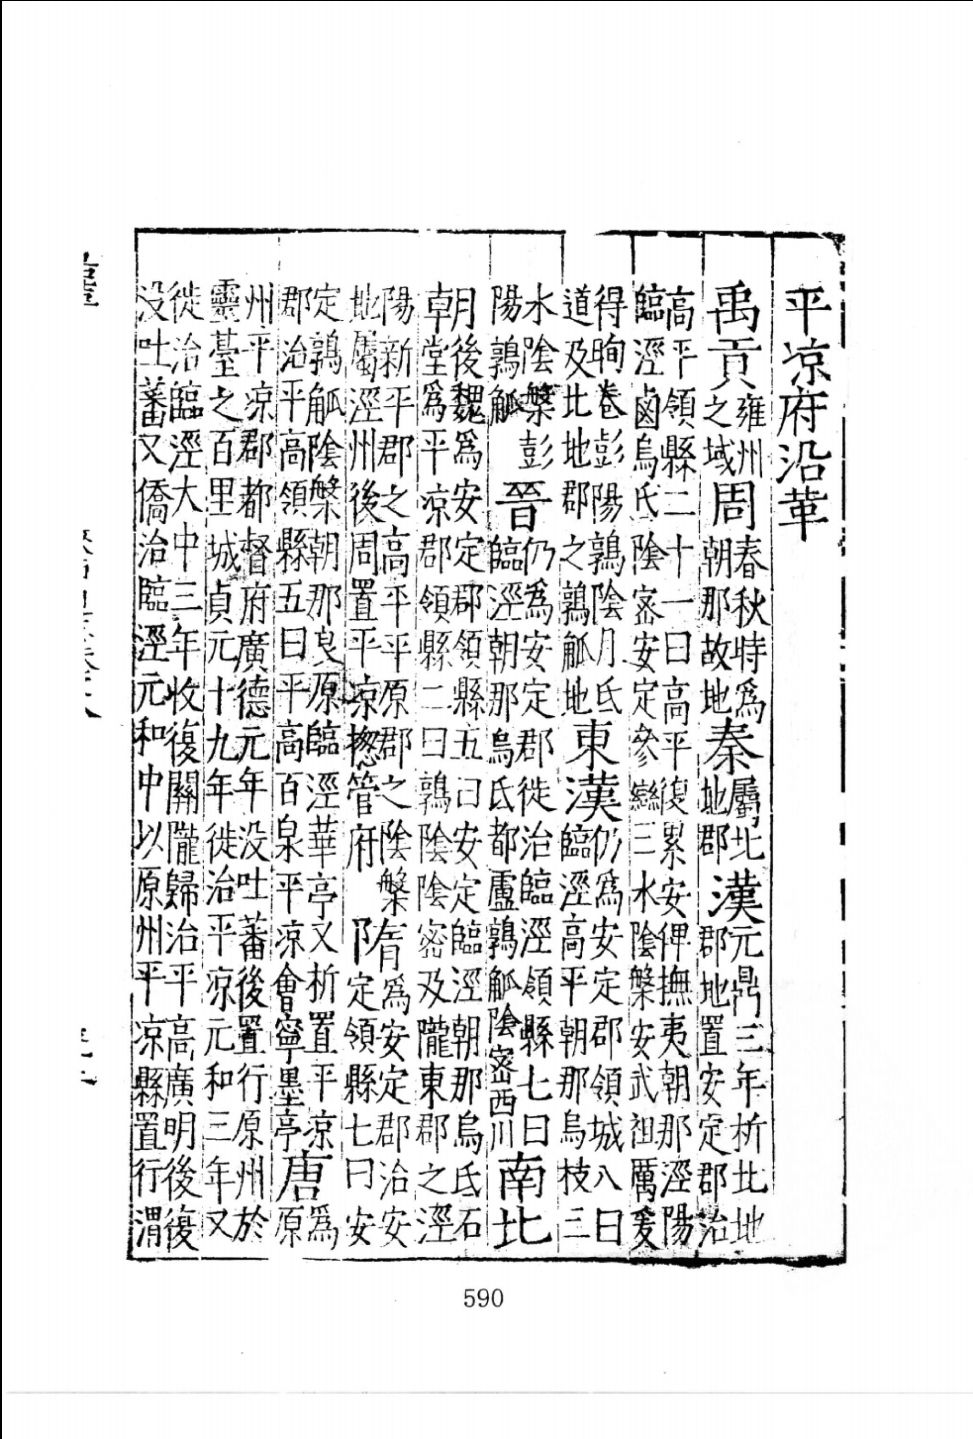 平凉府沿革
禹貢雍州之域周春秋時爲朝那故地秦屬北地郡漢元鼎三年析北地郡地置安定郡治
高平領縣二十一曰高平復累安俾撫夷朝那涇陽
臨涇鹵烏氏陰密安定參䜌三水陰槃安武祖厲爰
得眴卷彭陽鶉陰月氏道及北地郡之鶉觚地東漢仍爲安定郡領城八曰臨涇高平朝那烏枝三
水陰槃彭陽鶉觚晉仍爲安定郡徙治臨涇領縣七曰臨涇朝那烏氏都盧鶉觚陰密西川南北
朝後魏爲安定郡領縣五曰安定臨涇朝那烏氏石堂爲平凉郡領縣二曰鶉陰陰密及隴東郡之涇
陽新平郡之高平平原郡之陰槃地屬涇州後周置平凉揔管府隋爲安定郡治安定領縣七曰安
定鶉觚陰槃朝那良原臨涇華亭又析置平凉郡治平高領縣五曰平高百泉平凉會寧墨亭唐爲原
州平凉郡都督府廣德元年没吐蕃後置行原州於
靈臺之百里城貞元十九年徙治平凉元和三年又
徙治臨涇大中三年收復關隴歸治平高廣明後復
没吐蕃又僑治臨涇元和中以原州平凉縣置行渭
590